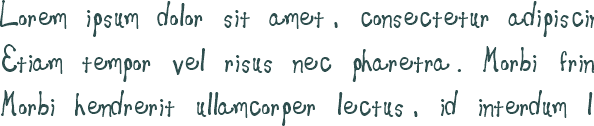 Lorem ipsum dolor sit amet, consectetur adipiscin
Etiam tempor vel risus nec pharetra. Morbi frin
Morbi hendrerit ullamcorper lectus, id interdum l